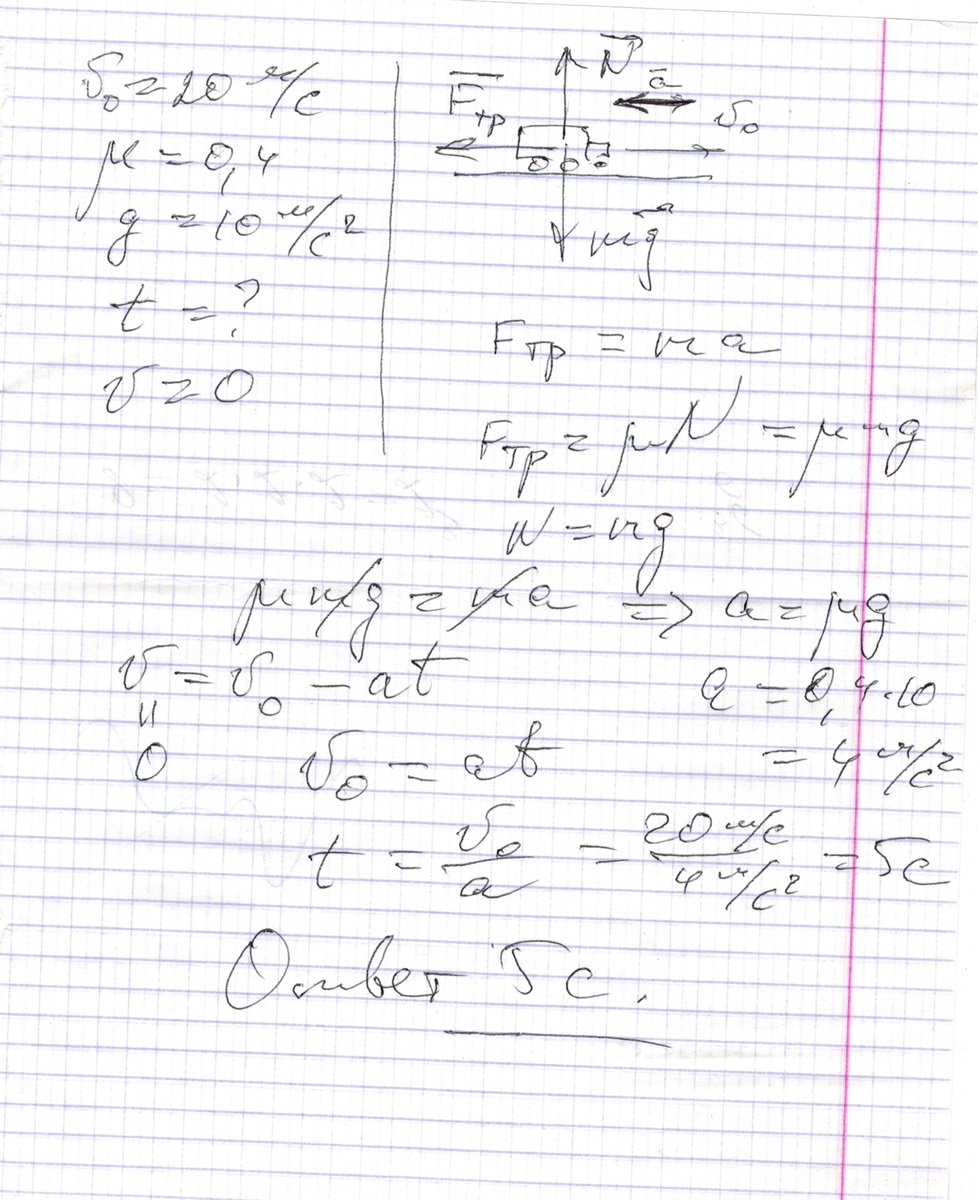 v₀ = 20 м/с
μ = 0,4
g = 10 м/с²
t = ?
v = 0
N
a
Fтр
v₀
mg
Fтр = ma
Fтр = μN = μmg
N = mg
μmg = ma => a = μg
v = v₀ - at
a = 0,4·10
"
0
v₀ = at
= 4 м/с²
t = v₀/a = 20 м/с / 4 м/с² = 5с
Ответ 5с.